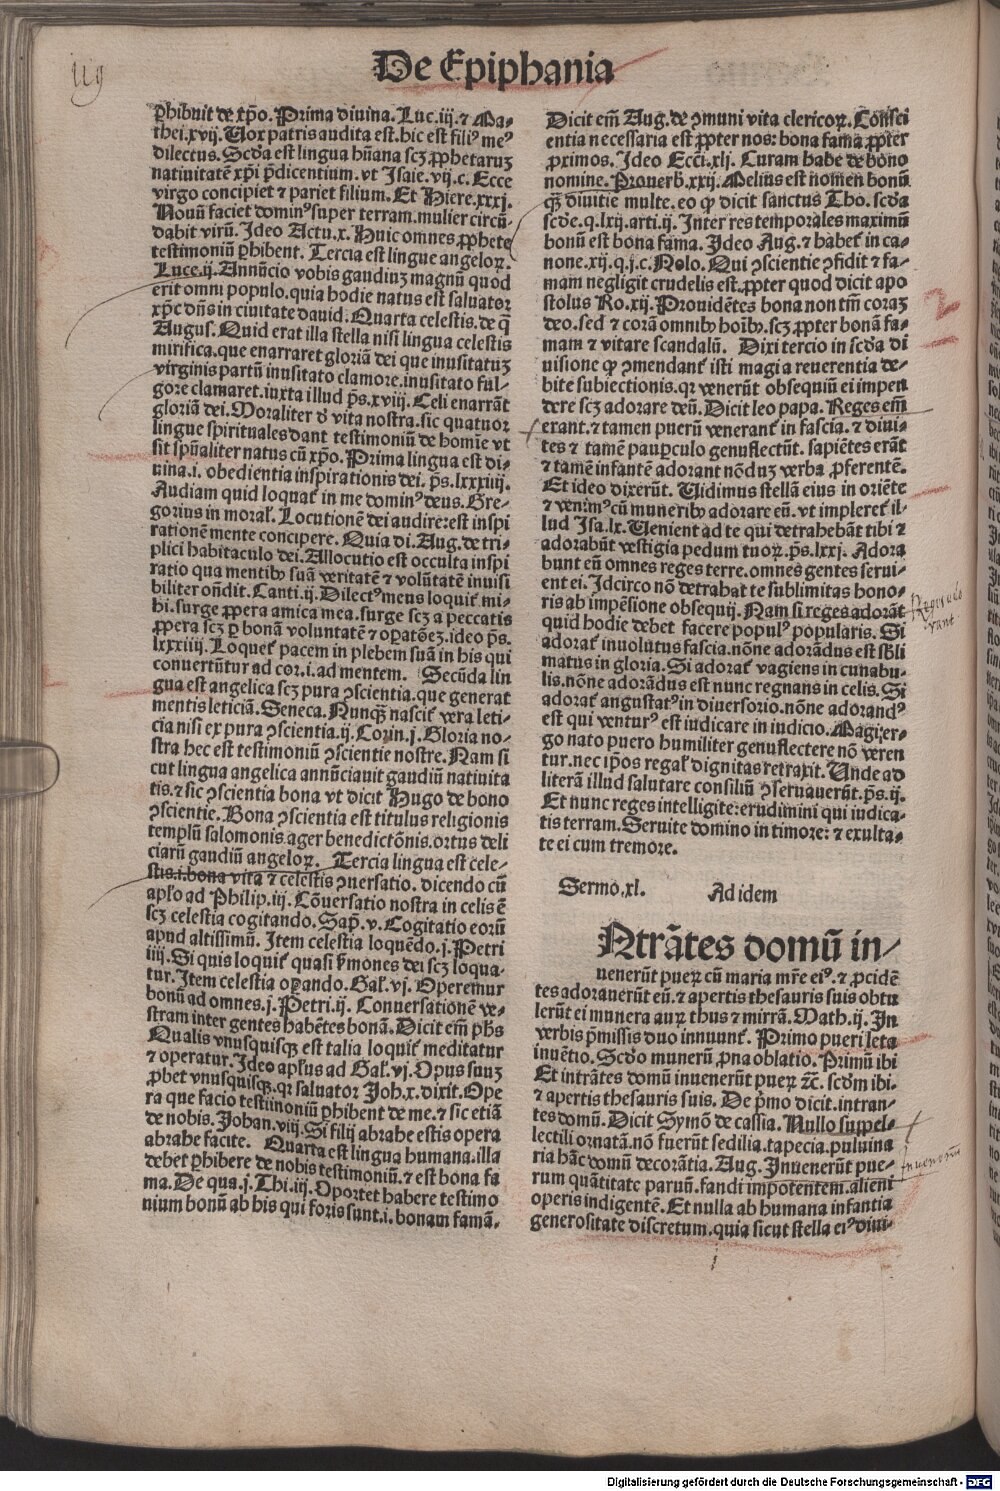 119
De Epiphania
ꝑhibuit de xp̄o. Prima diuina. Luc.iij. ⁊ Ma-
thei.xvij. Uox patris audita est. hic est filiꝰ meꝰ
dilectus. Scd̄a est lingua hūana scꝫ ꝓphetaruꝫ
natiuitatē xp̄i p̄dicentium. vt Isaie.vij.c. Ecce
virgo concipiet ⁊ pariet filium. Et Hiere.xxxj.
Nouū faciet dominꝰ super terram. mulier circū-
dabit virū. Ideo Actu.x. Huic omnes ꝓphete
testimoniū ꝑhibent. Tercia est lingue angeloꝝ.
Luce.ij. Annūcio vobis gaudiuꝫ magnū quod
erit omni populo. quia hodie natus est saluator
xp̄c dn̄s in ciuitate dauid. Quarta celestis. de q̄
Augus. Quid erat illa stella nisi lingua celestis
mirifica. que enarraret gloriā dei que inusitatuꝫ
virginis partū inusitato clamore. inusitato ful-
gore clamaret. iuxta illud ps̄.xviij. Celi enarrāt
gloriā dei. Moraliter d̓ vita nostra. sic quatuor
lingue spirituales dant testimoniū de homīe vt
sit spūaliter natus cū xp̄o. Prima lingua est di-
uina.i. obedientia inspirationis dei. ps̄.lxxxiiij.
Audiam quid loquat᷑ in me dominꝰ deus. Gre-
gorius in moral̓. Locutionē dei audire: est inspi
rationē mente concipere. Quia di. Aug. de tri-
plici habitaculo dei. Allocutio est occulta inspi
ratio qua mentibꝰ suā veritatē ⁊ volūtatē inuisi
biliter on̄dit. Canti.ij. Dilectꝰ meus loquit᷑ mi-
hi. surge ꝓpera amica mea. surge scꝫ a peccatis
ꝓpera scꝫ ꝑ bonā voluntatē ⁊ oꝑatōeꝫ. ideo ps̄.
lxxxiiij. Loquet᷑ pacem in plebem suā in his qui
conuertūtur ad cor.i. ad mentem. Secūda lin
gua est angelica scꝫ pura ꝯscientia. que generat
mentis leticiā. Seneca. Nunqꝫ̄ nascit᷑ vera leti-
cia nisi ex pura ꝯscientia. ij. Corin.j. Gloria no-
stra hec est testimoniū ꝯscientie nostre. Nam si
cut lingua angelica annūciauit gaudiū natiuita
tis. ⁊ sic ꝯscientia bona vt dicit Hugo de bono
ꝯscientie. Bona ꝯscientia est titulus religionis
templū salomonis. ager benedictōnis. ortus deli
ciarū gaudiū angeloꝝ. Tercia lingua est cele-
stis.i. bona vita ⁊ celestis ꝯuersatio. dicendo cū
apl̓o ad Philip.iij. Cōuersatio nostra in celis ē
scꝫ celestia cogitando. Sap̄.v. Cogitatio eorū
apud altissimū. Item celestia loquēdo.j. Petri
iiij. Si quis loquit᷑ quasi s̓mones dei scꝫ loqua-
tur. Item celestia oꝑando. Gal̓.vj. Operemur
bonū ad omnes.j. Petri.ij. Conuersationē ve-
stram inter gentes habētes bonā. Dicit em̄ ph̄s
Qualis vnusquisqꝫ est talia loquit᷑ meditatur
⁊ operatur. Ideo apl̓us ad Gal̓.vj. Opus suuꝫ
ꝓbet vnusquisqꝫ. qꝛ saluator Joh.x. dixit. Ope
ra que facio testimoniū ꝑhibent de me. ⁊ sic etiā
de nobis. Johan.viij. Si filij abrahe estis opera
abrahe facite. Quarta est lingua humana. illa
debet ꝑhibere de nobis testimoniū. ⁊ est bona fa
ma. De qua.j. Thi.iij. Oportet habere testimo
nium bonū ab his qui foris sunt.i. bonam famā.
Dicit em̄ Aug. de ꝯmuni vita clericoꝝ. Consci
entia necessaria est ꝓpter nos: bona fama ꝓpter
ꝓximos. Ideo Ecci.xlj. Curam habe de bono
nomine. Prouerb̄.xxij. Melius est nomen bonū
qꝫ̄ diuitie multe. eo ꝙ dicit sanctus Tho. scd̄a
scd̄e.q.lxij.arti.ij. Inter res temporales maximū
bonū est bona fama. Ideo Aug. ⁊ habet᷑ in ca-
none.xij.q.j.c. Nolo. Qui ꝯscientie ꝯfidit ⁊ fa-
mam negligit crudelis est. ꝓpter quod dicit apo
stolus Ro.xij. Prouidētes bona non tm̄ coraꝫ
deo. sed ⁊ corā omnibꝰ hoībꝰ. scꝫ ꝓpter bonā fa-
mam ⁊ vitare scandalū. Dixi tercio in scd̄a di
uisione ꝙ ꝯmendant᷑ isti magi a reuerentia de-
bite subiectionis. qꝛ venerūt obsequiū ei impen
dere scꝫ adorare deū. Dicit leo papa. Reges em̄
erant. ⁊ tamen puerū venerant᷑ in fascia. ⁊ diui-
tes ⁊ tamē pauꝑculo genuflectūt. sapiētes erāt
⁊ tamē infantē adorant nōduꝫ verba ꝓferentē.
Et ideo dixerūt. Uidimus stellā eius in oriēte
⁊ venimꝰ cū muneribꝰ adorare eū. vt impleret᷑ il-
lud Isa.lx. Uenient ad te qui detrahebāt tibi ⁊
adorabūt vestigia pedum tuoꝝ. ps̄.lxxj. Adora
bunt eū omnes reges terre. omnes gentes serui-
ent ei. Idcirco nō detrahat te sublimitas hono-
ris ab impēsione obsequij. Nam si reges adorāt
quid hodie debet facere populꝰ popularis. Si
adorat᷑ inuolutus fascia. nōne adorādus est sb̓li
matus in gloria. Si adorat᷑ vagiens in cunabu-
lis. nōne adorādus est nunc regnans in celis. Si
adorat᷑ angustatꝰ in diuersorio. nōne adorandꝰ
est qui venturꝰ est iudicare in iudicio. Magi ?er-
go nato puero humiliter genuflectere nō veren
tur. nec ip̄os regal̓ dignitas retraxit. Unde ad
literā illud salutare consiliū ꝯseruauerūt. ps̄.ij.
Et nunc reges intelligite: erudimini qui iudica-
tis terram. Seruite domino in timore: ⁊ exulta-
te ei cum tremore.
Sermo.xl. Ad idem
Ntrātes domū in-
uenerūt pueꝝ cū maria mr̄e eiꝰ. ⁊ ꝓcidē
tes adorauerūt eū. ⁊ apertis thesauris suis obtu
lerūt ei munera auꝝ thus ⁊ mirrā. Math.ij. In
verbis p̄missis duo innuunt᷑. Primo pueri leta
inuētio. Scd̄o munerū ꝓna oblatio. Primū ibi
Et intrātes domū inuenerūt pueꝝ ⁊c̄. scd̄m ibi.
⁊ apertis thesauris suis. De p̄mo dicit. intran-
tes domū. Dicit Symō de cassia. Nullo suppel-
lectili ornatā. nō fuerūt sedilia. tapecia. puluina
ria hāc domū decorātia. Aug. Inuenerūt pue-
rum quātitate paruū. fandi impotentem. alieni
operis indigentē. Et nulla ab humana infantia
generositate discretum. quia sicut stella eiꝰ diui-
Reges ado
rant
Inuenerūt
Digitalisierung gefördert durch die Deutsche Forschungsgemeinschaft - DFG